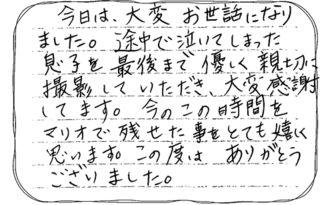 今日は、大変 お世話になり
ました。途中で泣いてしまった
息子を最後まで優しく親切に
撮影していただき、大変感謝
してます。今のこの時間を
マリオで残せた事をとても嬉しく
思います。この度は ありがとう
ございました。